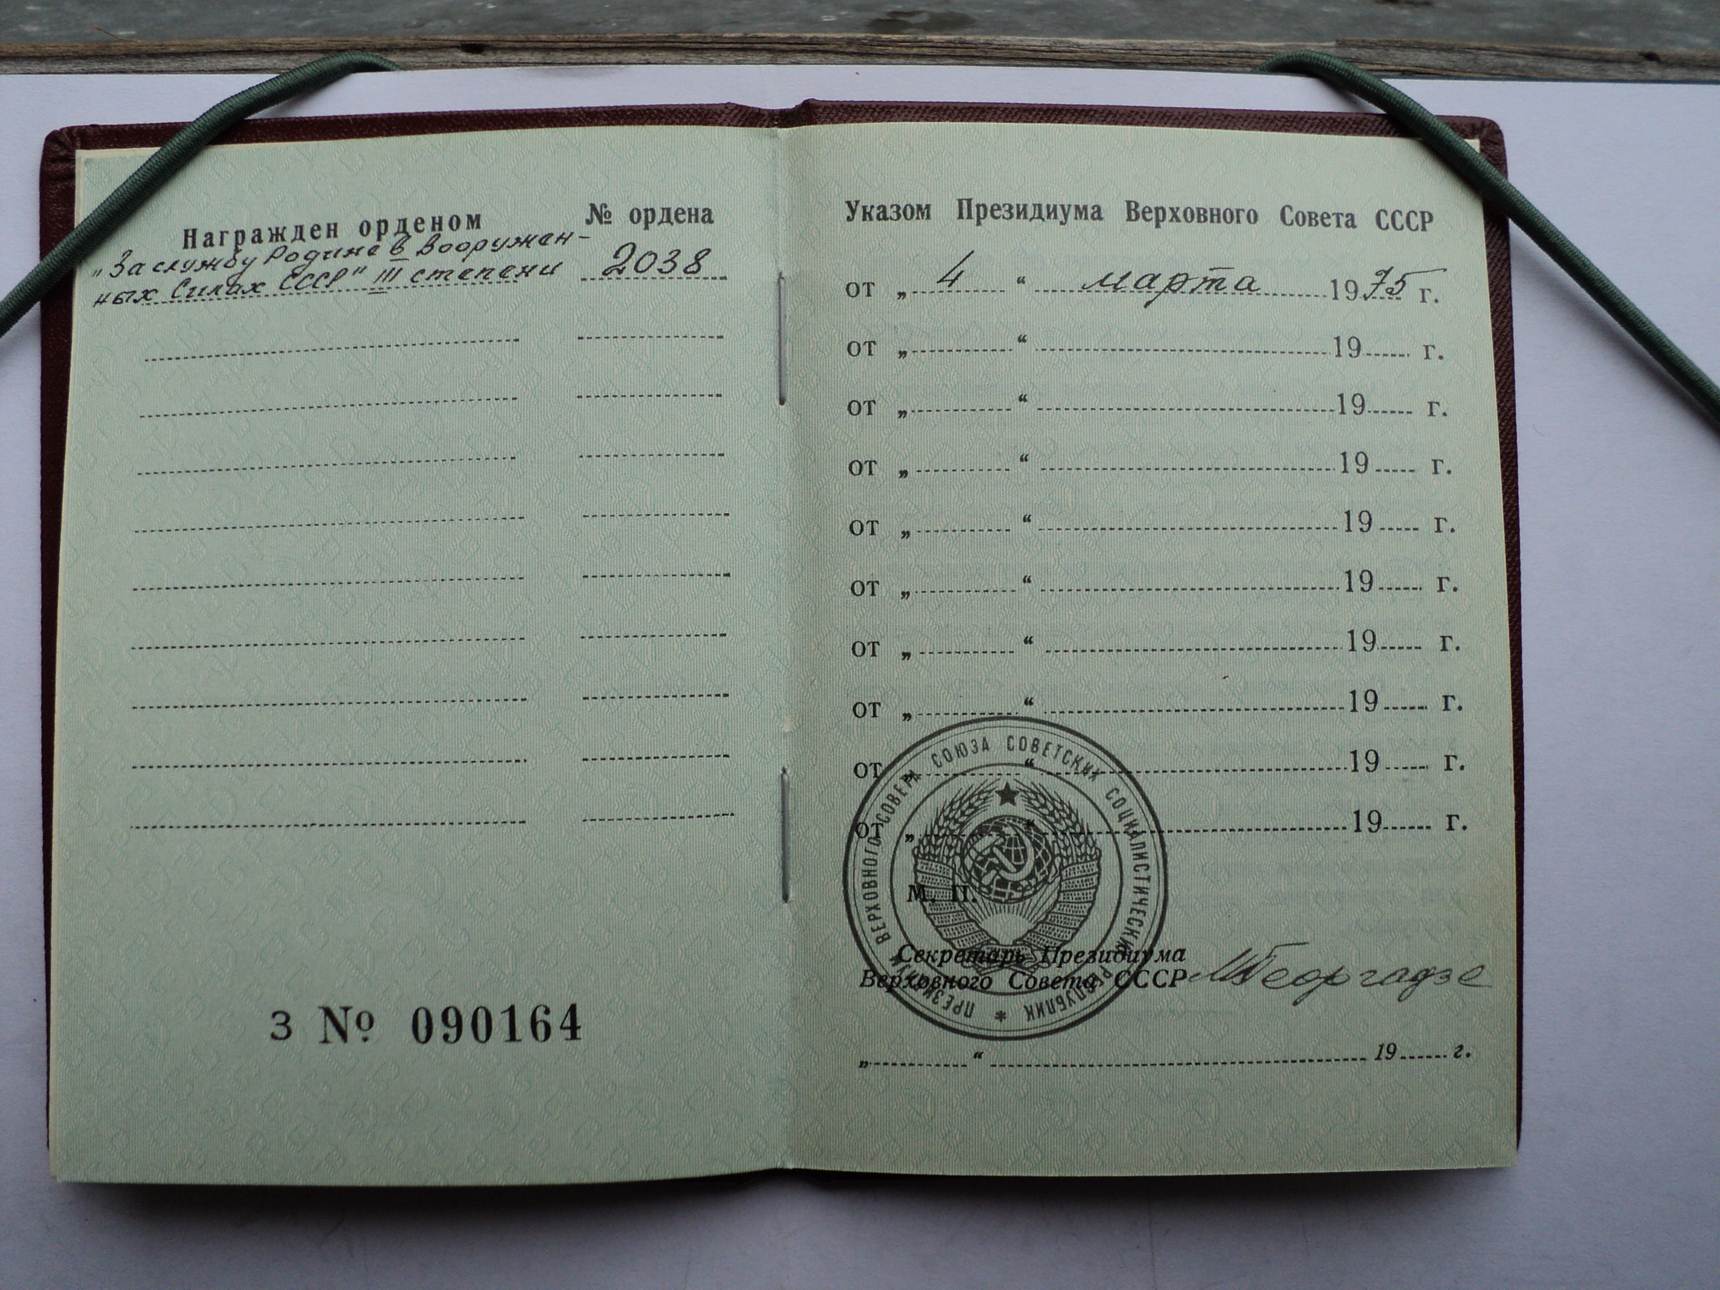 Награжден орденом № ордена
„За службу Родине в Вооружен- 2038
ных Силах СССР" III степени
З № 090164
Указом Президиума Верховного Совета СССР
от „ 4 “ марта 1975 г.
от „ “ 19 г.
от „ “ 19 г.
от „ “ 19 г.
от „ “ 19 г.
от „ “ 19 г.
от „ “ 19 г.
от „ “ 19 г.
от „ “ 19 г.
от „ “ 19 г.
М. П.
ПРЕЗИДИУМ ВЕРХОВНОГО СОВЕТА СОЮЗА СОВЕТСКИХ СОЦИАЛИСТИЧЕСКИХ РЕСПУБЛИК *
Секретарь Президиума
Верховного Совета СССР МГеоргадзе
„ “ 19 г.